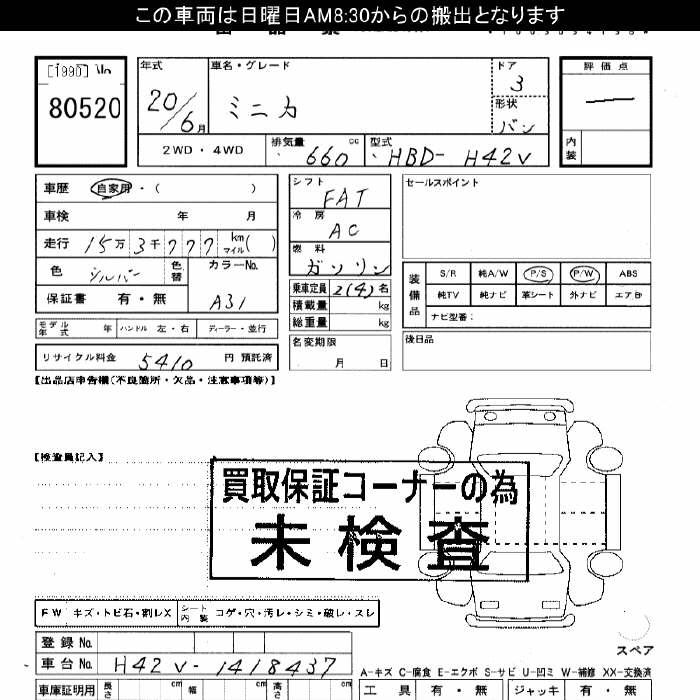 この車両は日曜日AM8:30からの搬出となります
[1990] No
80520
年式 車名・グレード ドア 評価点
20/6月 ミニカ 3
形状
バン
2WD・4WD 排気量 660 cc 型式 HBD- H42V 内装
車歴 自家用・( )
車検 年 月
走行 15万3千777 km マイル( )
色 シルバー 色替 カラーNo.
保証書 有・無 A31
モデル年式 年 ハンドル 左・右 ディーラー・並行
リサイクル料金 5410 円 預託済
シフト FAT
冷房 AC
燃料 ガソリン
乗車定員 2(4)名
積載量 kg
総重量 kg
名変期限
月 日
セールスポイント
装備品 S/R 純A/W P/S P/W ABS
純TV 純ナビ 革シート 外ナビ エアB
ナビ型番:
後日品
【出品店申告欄(不良箇所・欠品・注意事項等)】
【検査員記入】
買取保証コーナーの為
未検査
FW キズ・トビ石・割レX シート内装 コゲ・穴・汚レ・シミ・破レ・スレ
登録No.
車台No. H42V-1418437
スペア
A-キズ C-腐食 E-エクボ S-サビ U-凹ミ W-補修 XX-交換済
車庫証明用 長さ cm 幅 cm 高さ cm
工具 有・無 ジャッキ 有・無